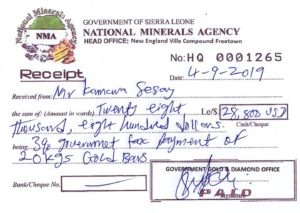 National Minerals Agency
NMA
GOVERNMENT OF SIERRA LEONE
NATIONAL MINERALS AGENCY
HEAD OFFICE: New England Ville Compound Freetown
No: HQ 0001265
Receipt
Date: 4-9-2019
Received from: Mr Kamara Sesay
the sum of: (Amount in words) Twenty eight Le/$ 28,800 USD
Thousand, eight hundred dollars. Cash/Cheque
being: 3% government tax payment of
20kgs Gold Bars
GOVERNMENT GOLD & DIAMOND OFFICE
Bank/Cheque No.
PAID